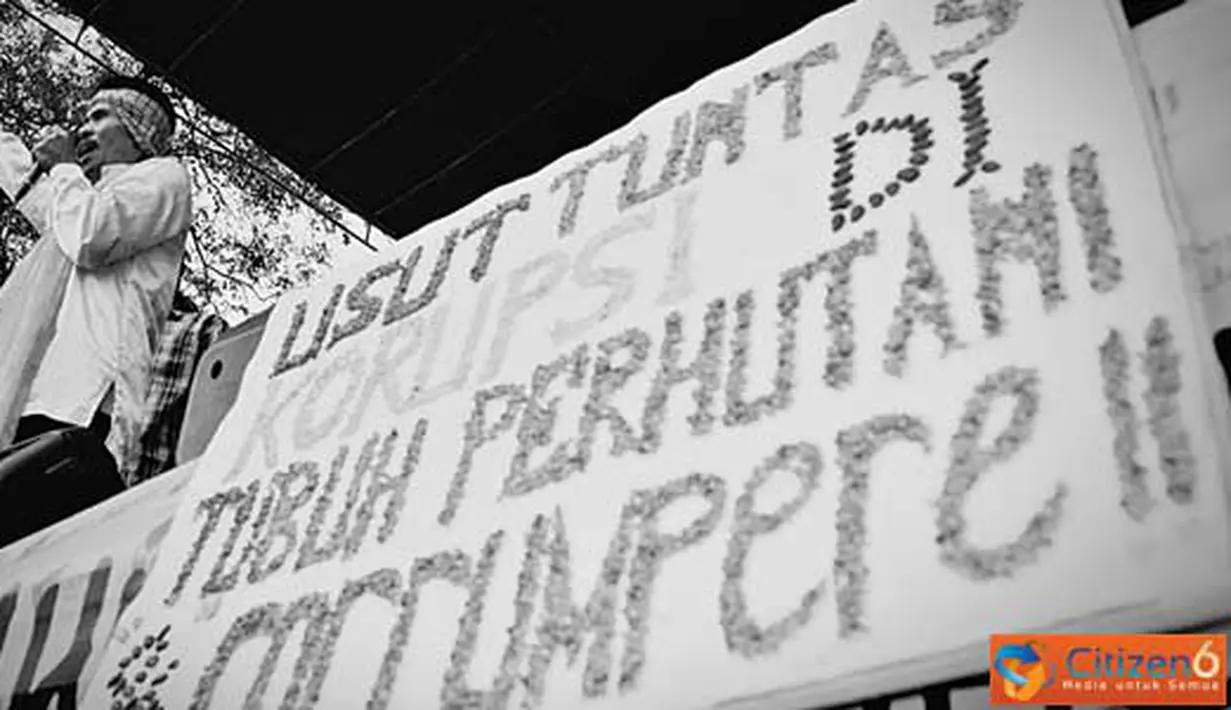 USUT TUNTAS
KORUPSI DI
TUBUH PERHUTANI
!!
Citizen6
Media untuk Semua